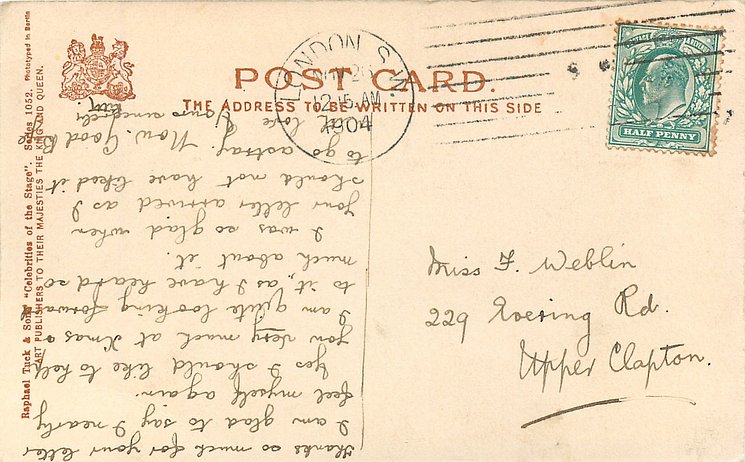 POST CARD.
THE ADDRESS TO BE WRITTEN ON THIS SIDE
LONDON. S.W
12.15 AM
1904
HALF PENNY
Raphael Tuck & Sons' "Celebrities of the Stage". Series 1052. Phototyped in Berlin
ART PUBLISHERS TO THEIR MAJESTIES THE KING AND QUEEN.
Miss F. Weblin
229 Evering Rd.
Upper Clapton.
Thanks so much for your letter
I am glad to say I nearly
feel myself again.
Yes I should like to help
you very much at Xmas
I am quite looking forward
to it, as I have heard so
much about it.
I was so glad when
your letter arrived as I
should not have liked it
to go astray. Now Good Bye
love
Yours sincerely